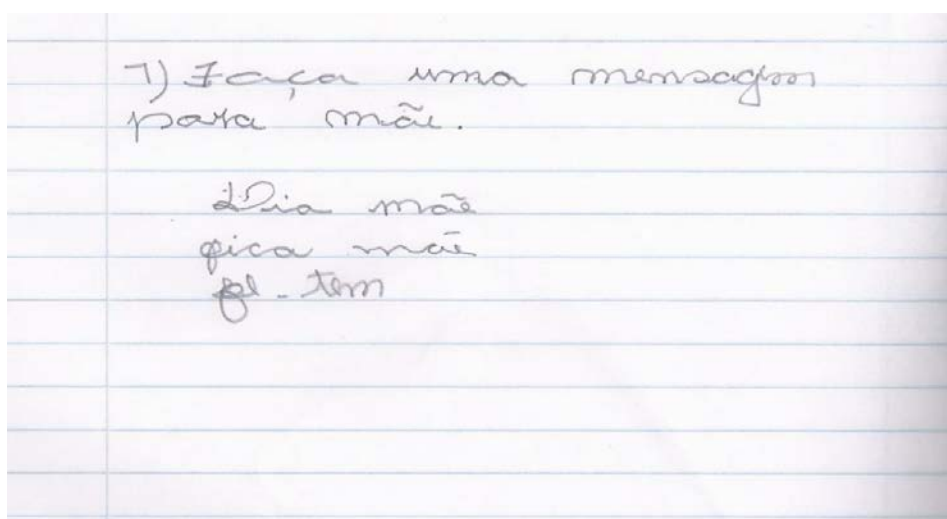 7) Faça uma mensagem
para mãe.
Dia mãe
fica mãe
tem